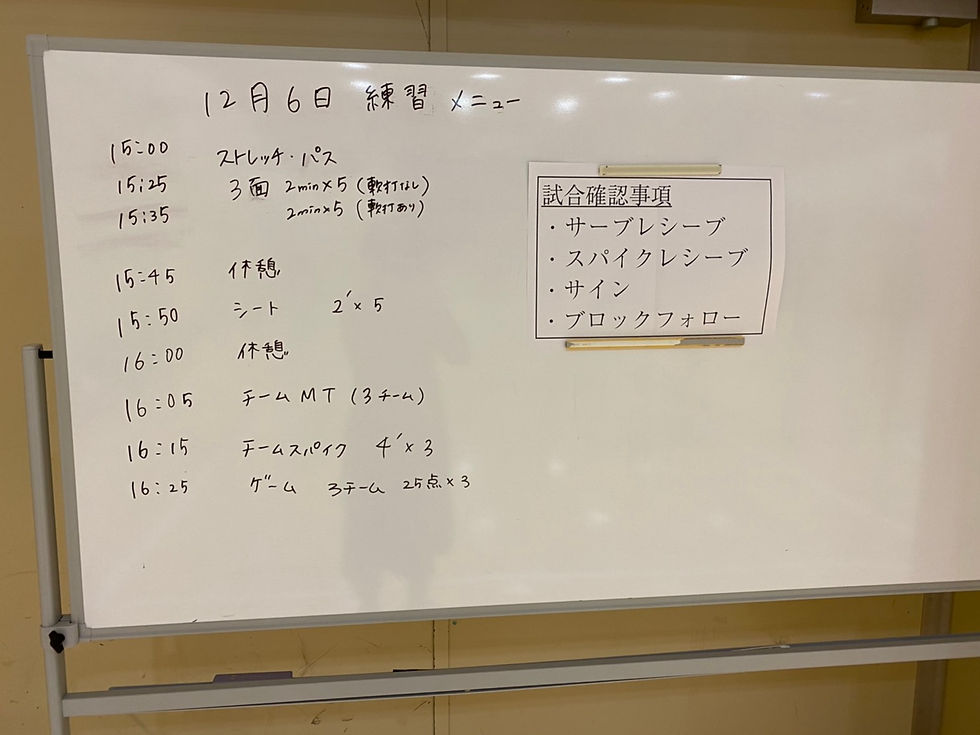 12月6日 練習 メニュー
15:00 ストレッチ・パス
15:25 3面 2min×5 (軟打なし)
15:35 2min×5 (軟打あり)
15:45 休憩
15:50 シート 2'×5
16:00 休憩
16:05 チームMT (3チーム)
16:15 チームスパイク 4'×3
16:25 ゲーム 3チーム 25点×3
試合確認事項
・サーブレシーブ
・スパイクレシーブ
・サイン
・ブロックフォロー